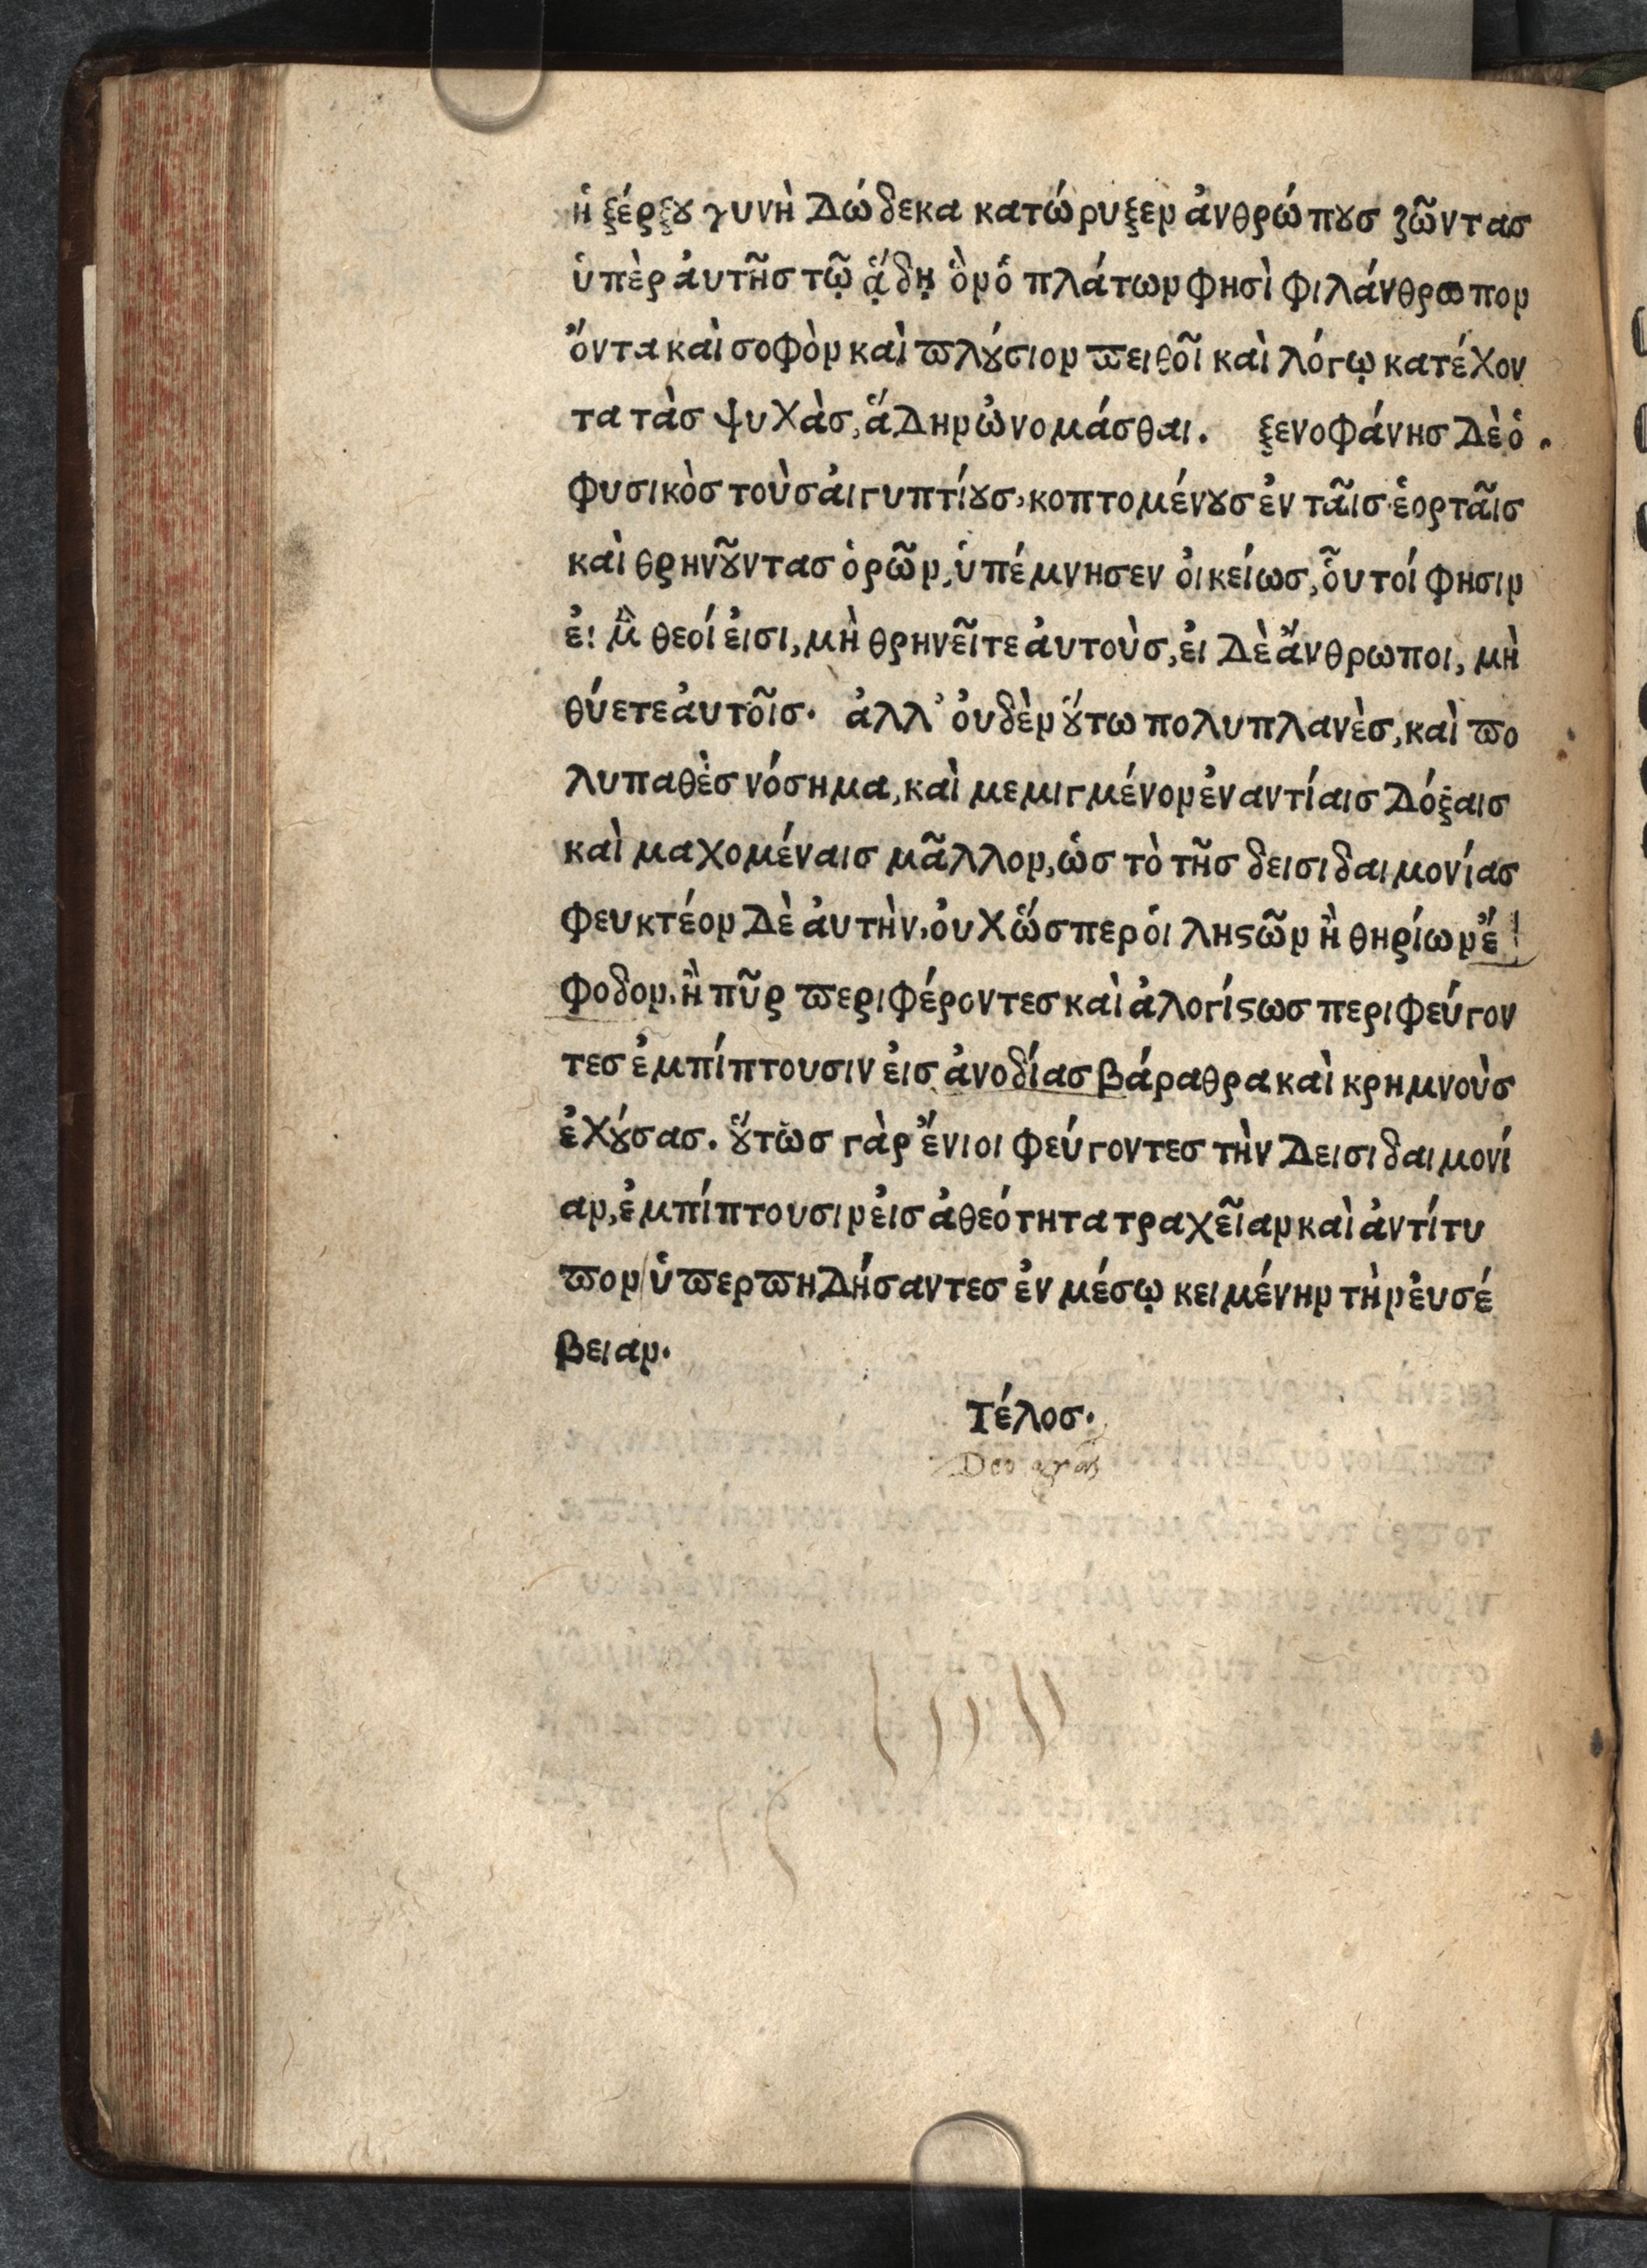 ἡ ξέρξȣ γυνὴ Δώδεκα κατώρυξεν ἀνθρώπȣσ ζῶντασ
ὑπὲρ ἀυτῆσ τῷ ᾅδῃ ὃν ὁ πλάτων φησὶ φιλάνθρωπον
ὄντα καὶ σοφὸν καὶ ϖλȣ́σιον ϖειθοῖ καὶ λόγῳ κατέχον
τα τὰσ ψυχὰσ, ἅΔην ὠνομάσθαι. ξενοφάνησ Δὲ ὁ.
φυσικὸσ τοὺσ ἀιγυπτίȣσ, κοπτομένȣσ ἐν ταῖσ ἑορταῖσ
καὶ θρηνȣ͂ντασ ὁρῶν, ὑπέμνησεν ὀικείωσ, ὅυτοί φησιν
ἐι μ̀ θεοί ἐισι, μὴ θρηνεῖτε ἀυτοὺσ, ἐι Δὲ ἄνθρωποι, μὴ
θύετε ἀυτοῖσ. ἀλλ' ὀυδὲν ȣ̔́τω πολυπλανὲσ, καὶ ϖο
λυπαθὲσ νόσημα, καὶ μεμιγμένον ἐναντίαισ Δόξαισ
καὶ μαχομέναισ μᾶλλον, ὡσ τὸ τῆσ δεισιδαιμονίασ
φευκτέον Δὲ ἀυτὴν, ὀυχ ὥσπερ ὁι ληϛῶν ἢ θηρίων ἔ
φοδον, ἢ πῦρ ϖεριφέροντεσ καὶ ἀλογίϛωσ περιφεύγον
τεσ ἐμπίπτουσιν ἐισ ἀνοδίασ βάραθρα καὶ κρημνοὺσ
ἐχȣ́σασ. ȣ̔́τωσ γὰρ ἔνιοι φεύγοντεσ τὴν Δεισιδαιμονί
αν, ἐμπίπτουσιν ἐισ ἀθεότητα τραχεῖαν καὶ ἀντίτυ
ϖον ὑϖερϖηΔήσαντεσ ἐν μέσῳ κειμένην τὴν ἐυσέ
βειαν.
Τέλοσ.
Deo